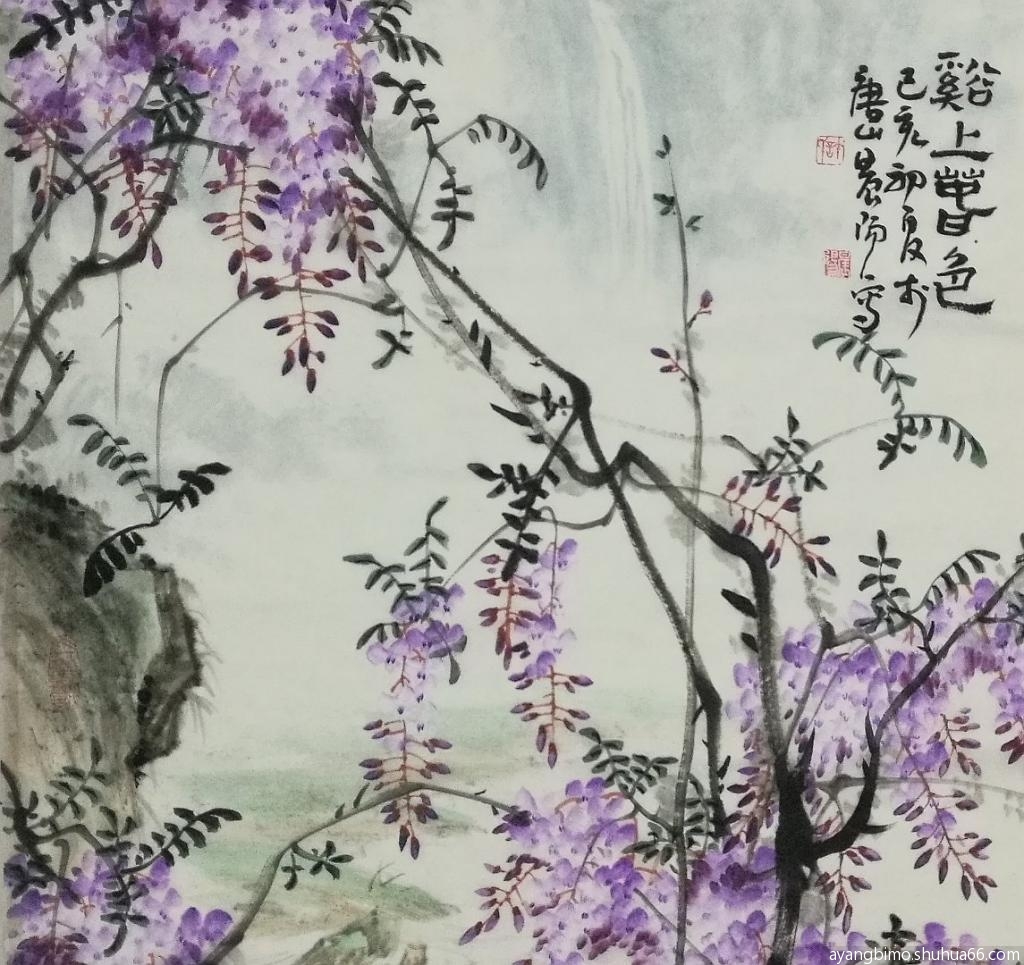 谿上萅色
己亥初夏於
唐山晨阳写
ayangbimo.shuhua66.com